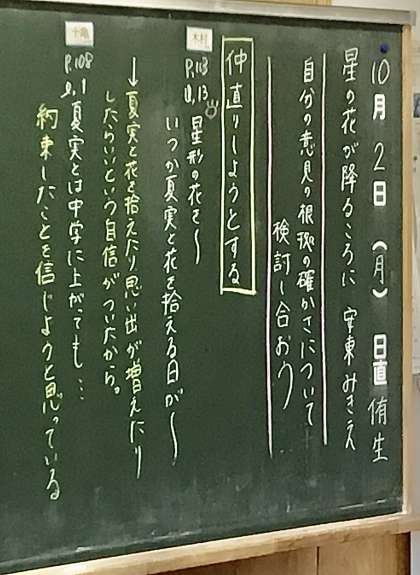 10月2日（月）日直 侑生
星の花が降るころに 安東みきえ
自分の意見の根拠の確かさについて
検討し合おう
仲直りしようとする
木村
P.113
l.13
星形の花を〜
いつか夏実と花を拾える日が〜
→夏実と花を拾えたり思い出が増えたり
したらいいという自信がついたから。
十亀
P.108
l.1
夏実とは中学に上がっても…
約束したことを信じようと思っている